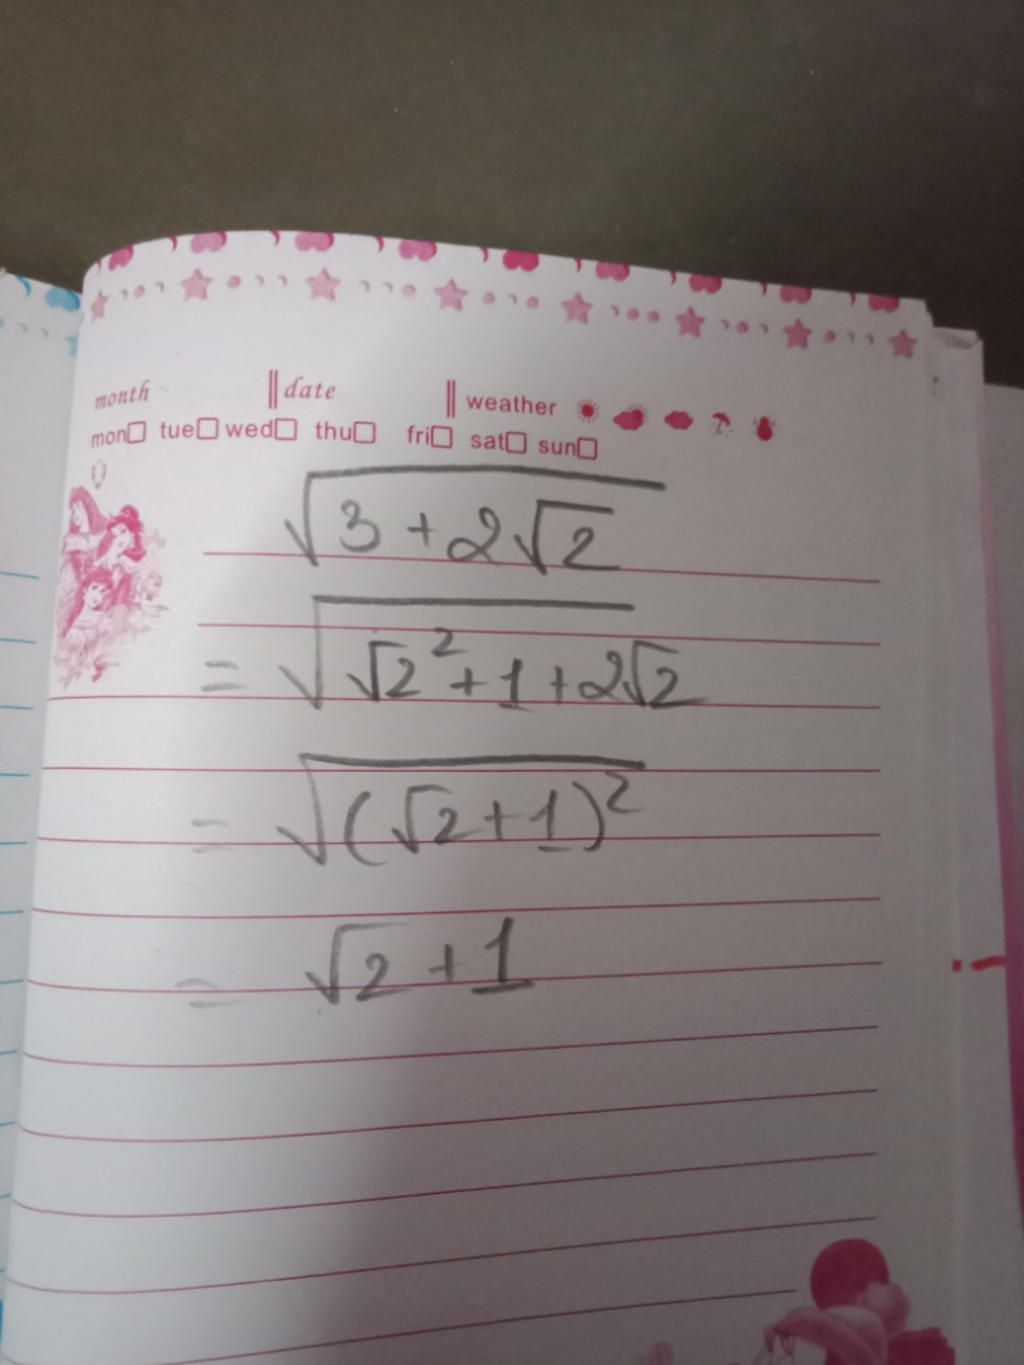 month || date || weather
mon□ tue□ wed□ thu□ fri□ sat□ sun□
√(3 + 2√2)
= √(√2² + 1 + 2√2)
= √((√2 + 1)²)
= √2 + 1